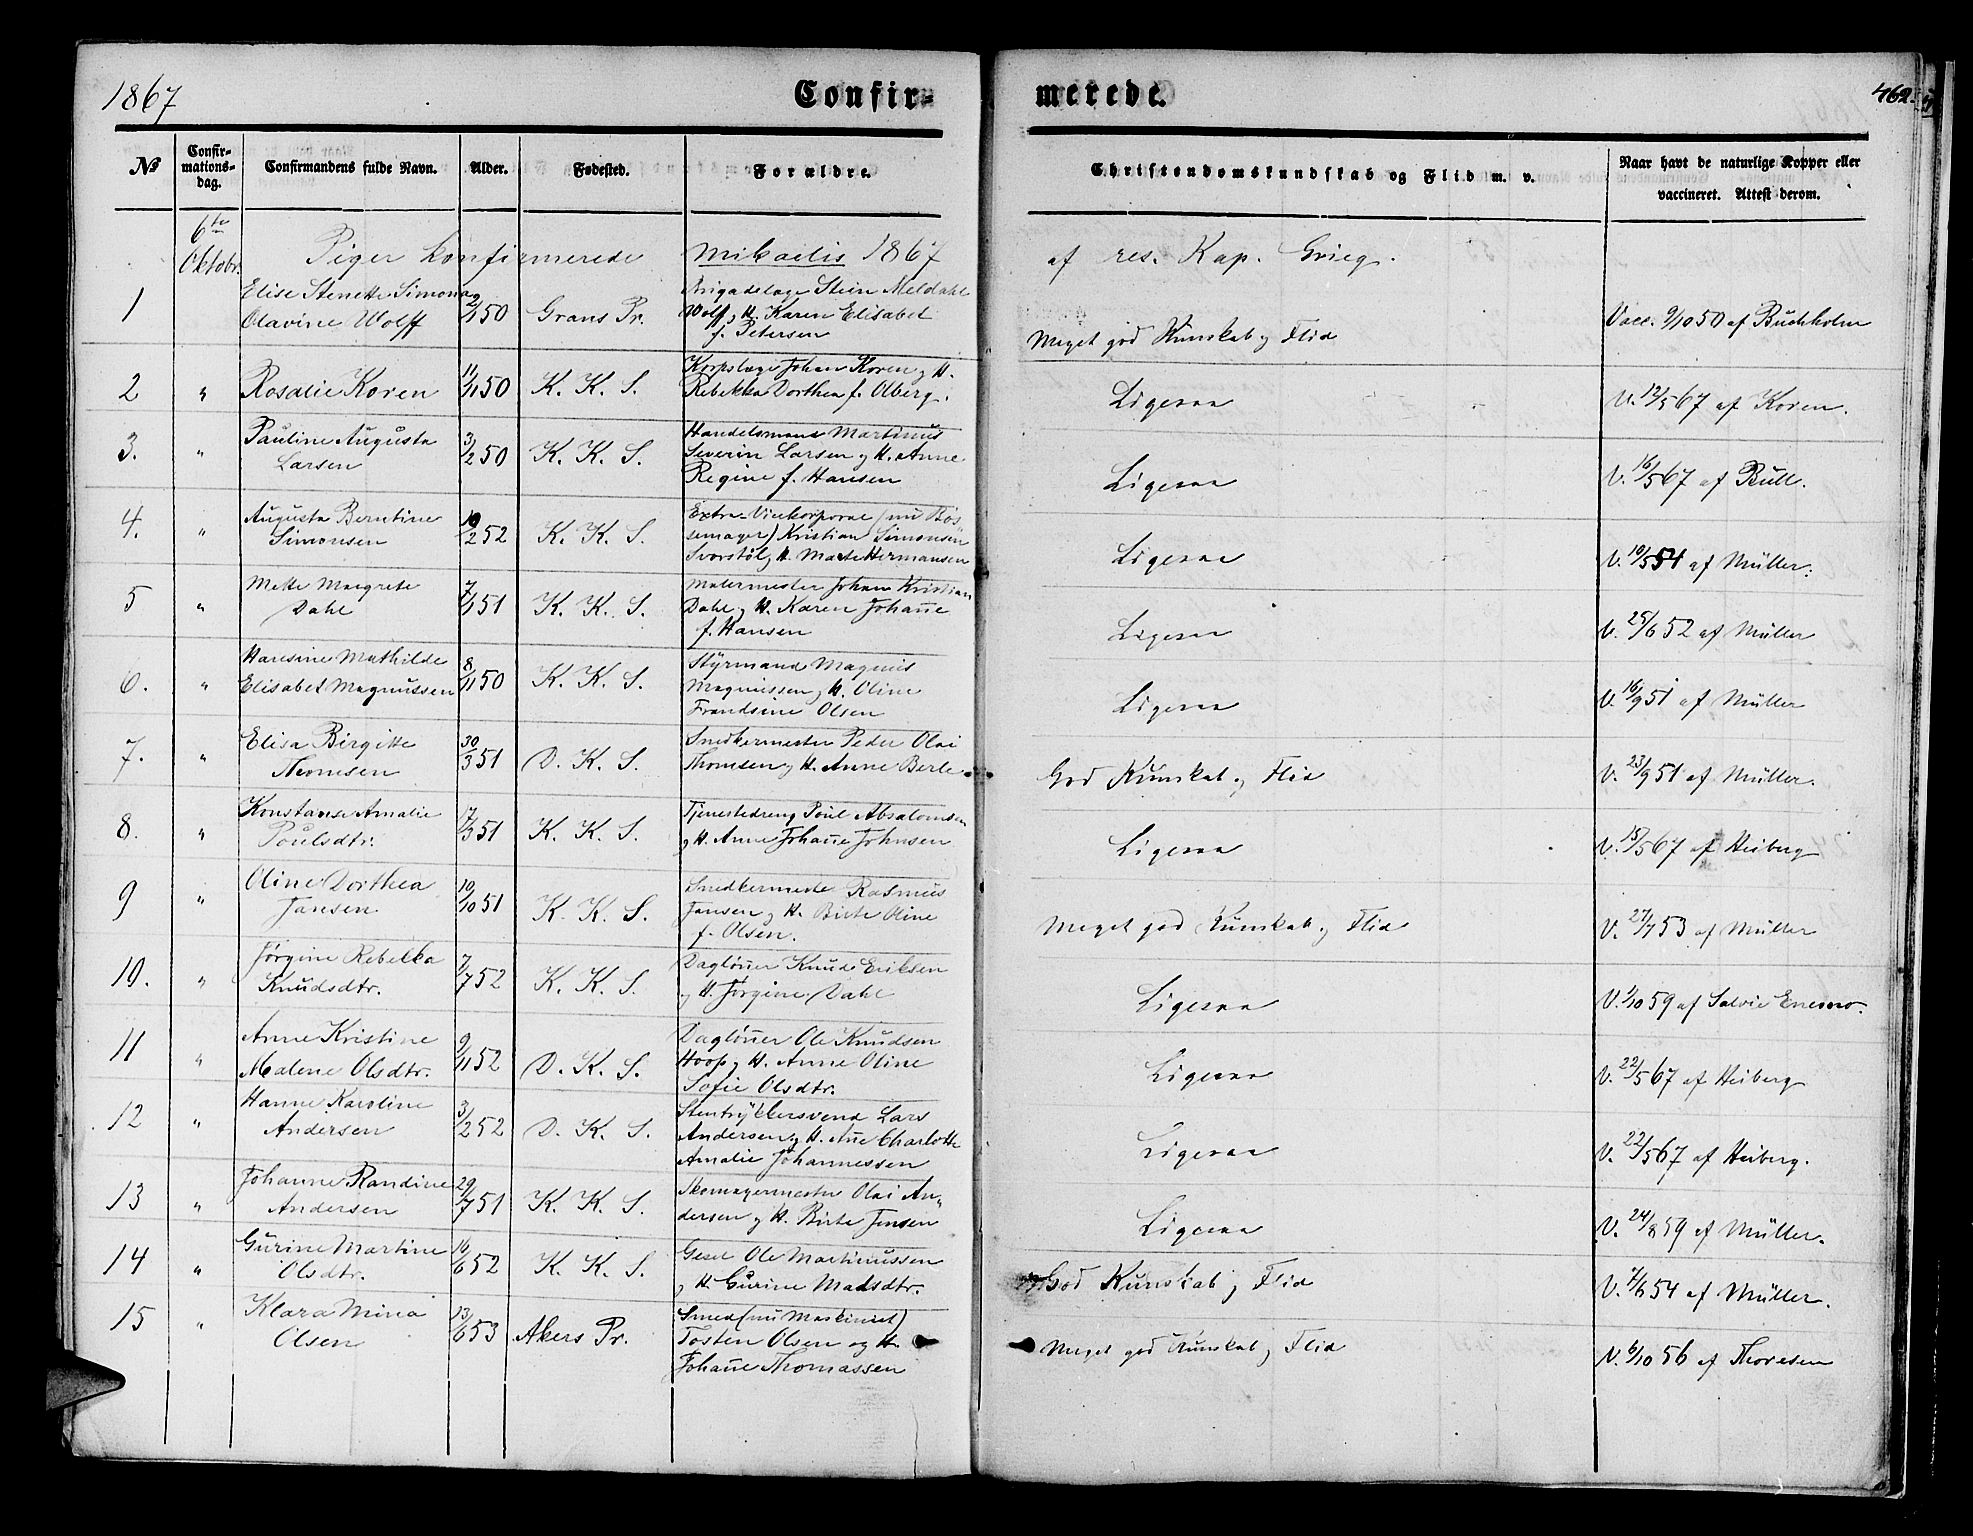 1867
Confir-
merede.
462.
No
Confir-
mations-
dag.
Confirmandens fulde Navn.
Alder.
Fødested.
Forældre.
Christendomskundskab og Flid m. v.
Naar havt de naturlige Kopper eller
vaccineret. Attest derom.
6te
Oktobr.
Piger konfirmerede Mikaelis 1867
af res. Kap. Grieg.
1
Elise Stenette Simona
Olavine Wolff
50
Grans Pr.
Brigadelæge Stein Meldahl
Wolf og H. Karen Elisabet
f. Petersen
Meget god Kunskab og Flid
Vacc. 9/10 50 af Buchholm
2
"
Rosalie Koren
11/11 50
K. K. S.
Korpslæge Johan Koren og H.
Rebekka Dorthea f. Olberg.
Ligesaa
V. 12/5 67 af Koren.
3.
"
Pauline Augusta
Larsen
3/2 50
K. K. S.
Handelsmand Martinus
Severin Larsen og H. Anne
Regine f. Hansen
Ligesaa
V. 16/5 67 af Bull.
4.
"
Augusta Berntine
Simonsen
10/2 52
K. K. S.
Extra Vicekorporal (nu Bøs-
semager) Kristian Simonsen
Svorstøl og H. Marte Hermansen
Ligesaa
V. 10/5 54 af Müller.
5
"
Mette Margrete
Dahl
7/1 51
K. K. S.
Malermester Johan Kristian
Dahl og H. Karen Johanne
f. Hansen
Ligesaa
V. 25/6 52 af Müller
6.
"
Hansine Mathilde
Elisabet Magnussen
8/11 50
K. K. S.
Styrmand Magnus
Magnussen og H. Oline
Frandsine Olsen
Ligesaa
V. 16/9 51 af Müller
7.
"
Elisa Birgitte
Thomsen
30/3 51
D. K. S.
Snedkermester Peder Olai
Thomsen og H. Anne Berle
God Kunskab og Flid
V. 23/9 51 af Müller.
8.
"
Konstanse Amalie
Poulsdtr.
17/3 51
K. K. S.
Tjenestedreng Poul Absalomsen
og H. Anne Johanne Johnsen
Ligesaa
V. 15/5 67 af Heiberg
9
"
Oline Dorthea
Jansen
10/10 51
K. K. S.
Snedkermester Rasmus
Jansen og H. Birte Oline
f. Olsen.
Meget god Kunskab og Flid
V. 27/7 53 af Müller
10.
"
Jørgine Rebekka
Knudsdtr.
7/7 52
K. K. S.
Dagløner Knud Eriksen
og H. Jørgine Dahl
Ligesaa
V. 1/10 59 af Salvie Enesmo.
11
"
Anne Kristine
Malene Olsdtr.
9/11 52
D. K. S.
Dagløner Ole Knudsen
Hoop og H. Anne Oline
Sofie Olsdtr.
Ligesaa
V. 22/5 67 af Heiberg
12
"
Hanne Karoline
Andersen
3/2 52
D. K. S.
Stentrykkersvend Lars
Andersen og H. Ane Charlotte
Amalie Johannessen
Ligesaa
V. 22/5 67 af Heiberg.
13
"
Johanne Randine
Andersen
29/7 51
K. K. S.
Skomagermester Olai An-
dersen og H. Birte Jensen
Ligesaa
V. 24/8 59 af Müller.
14
"
Gurine Martine
Olsdtr.
16/6 52
K. K. S.
Gesel Ole Martinussen
og H. Gurine Madsdtr.
God Kunskab og Flid
V. 7/6 54 af Müller.
15
"
Klara Mina
Olsen
13/6 53
Akers Pr.
Smed (nu Maskinist)
Tosten Olsen og H.
Johanne Thomassen
Meget god Kunskab og Flid
V. 6/10 56 af Thoresen